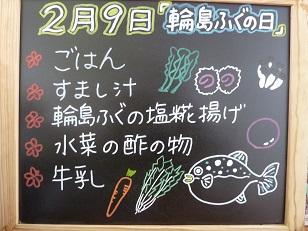 2月9日「輪島ふぐの日」
ごはん
すまし汁
輪島ふぐの塩糀揚げ
水菜の酢の物
牛乳